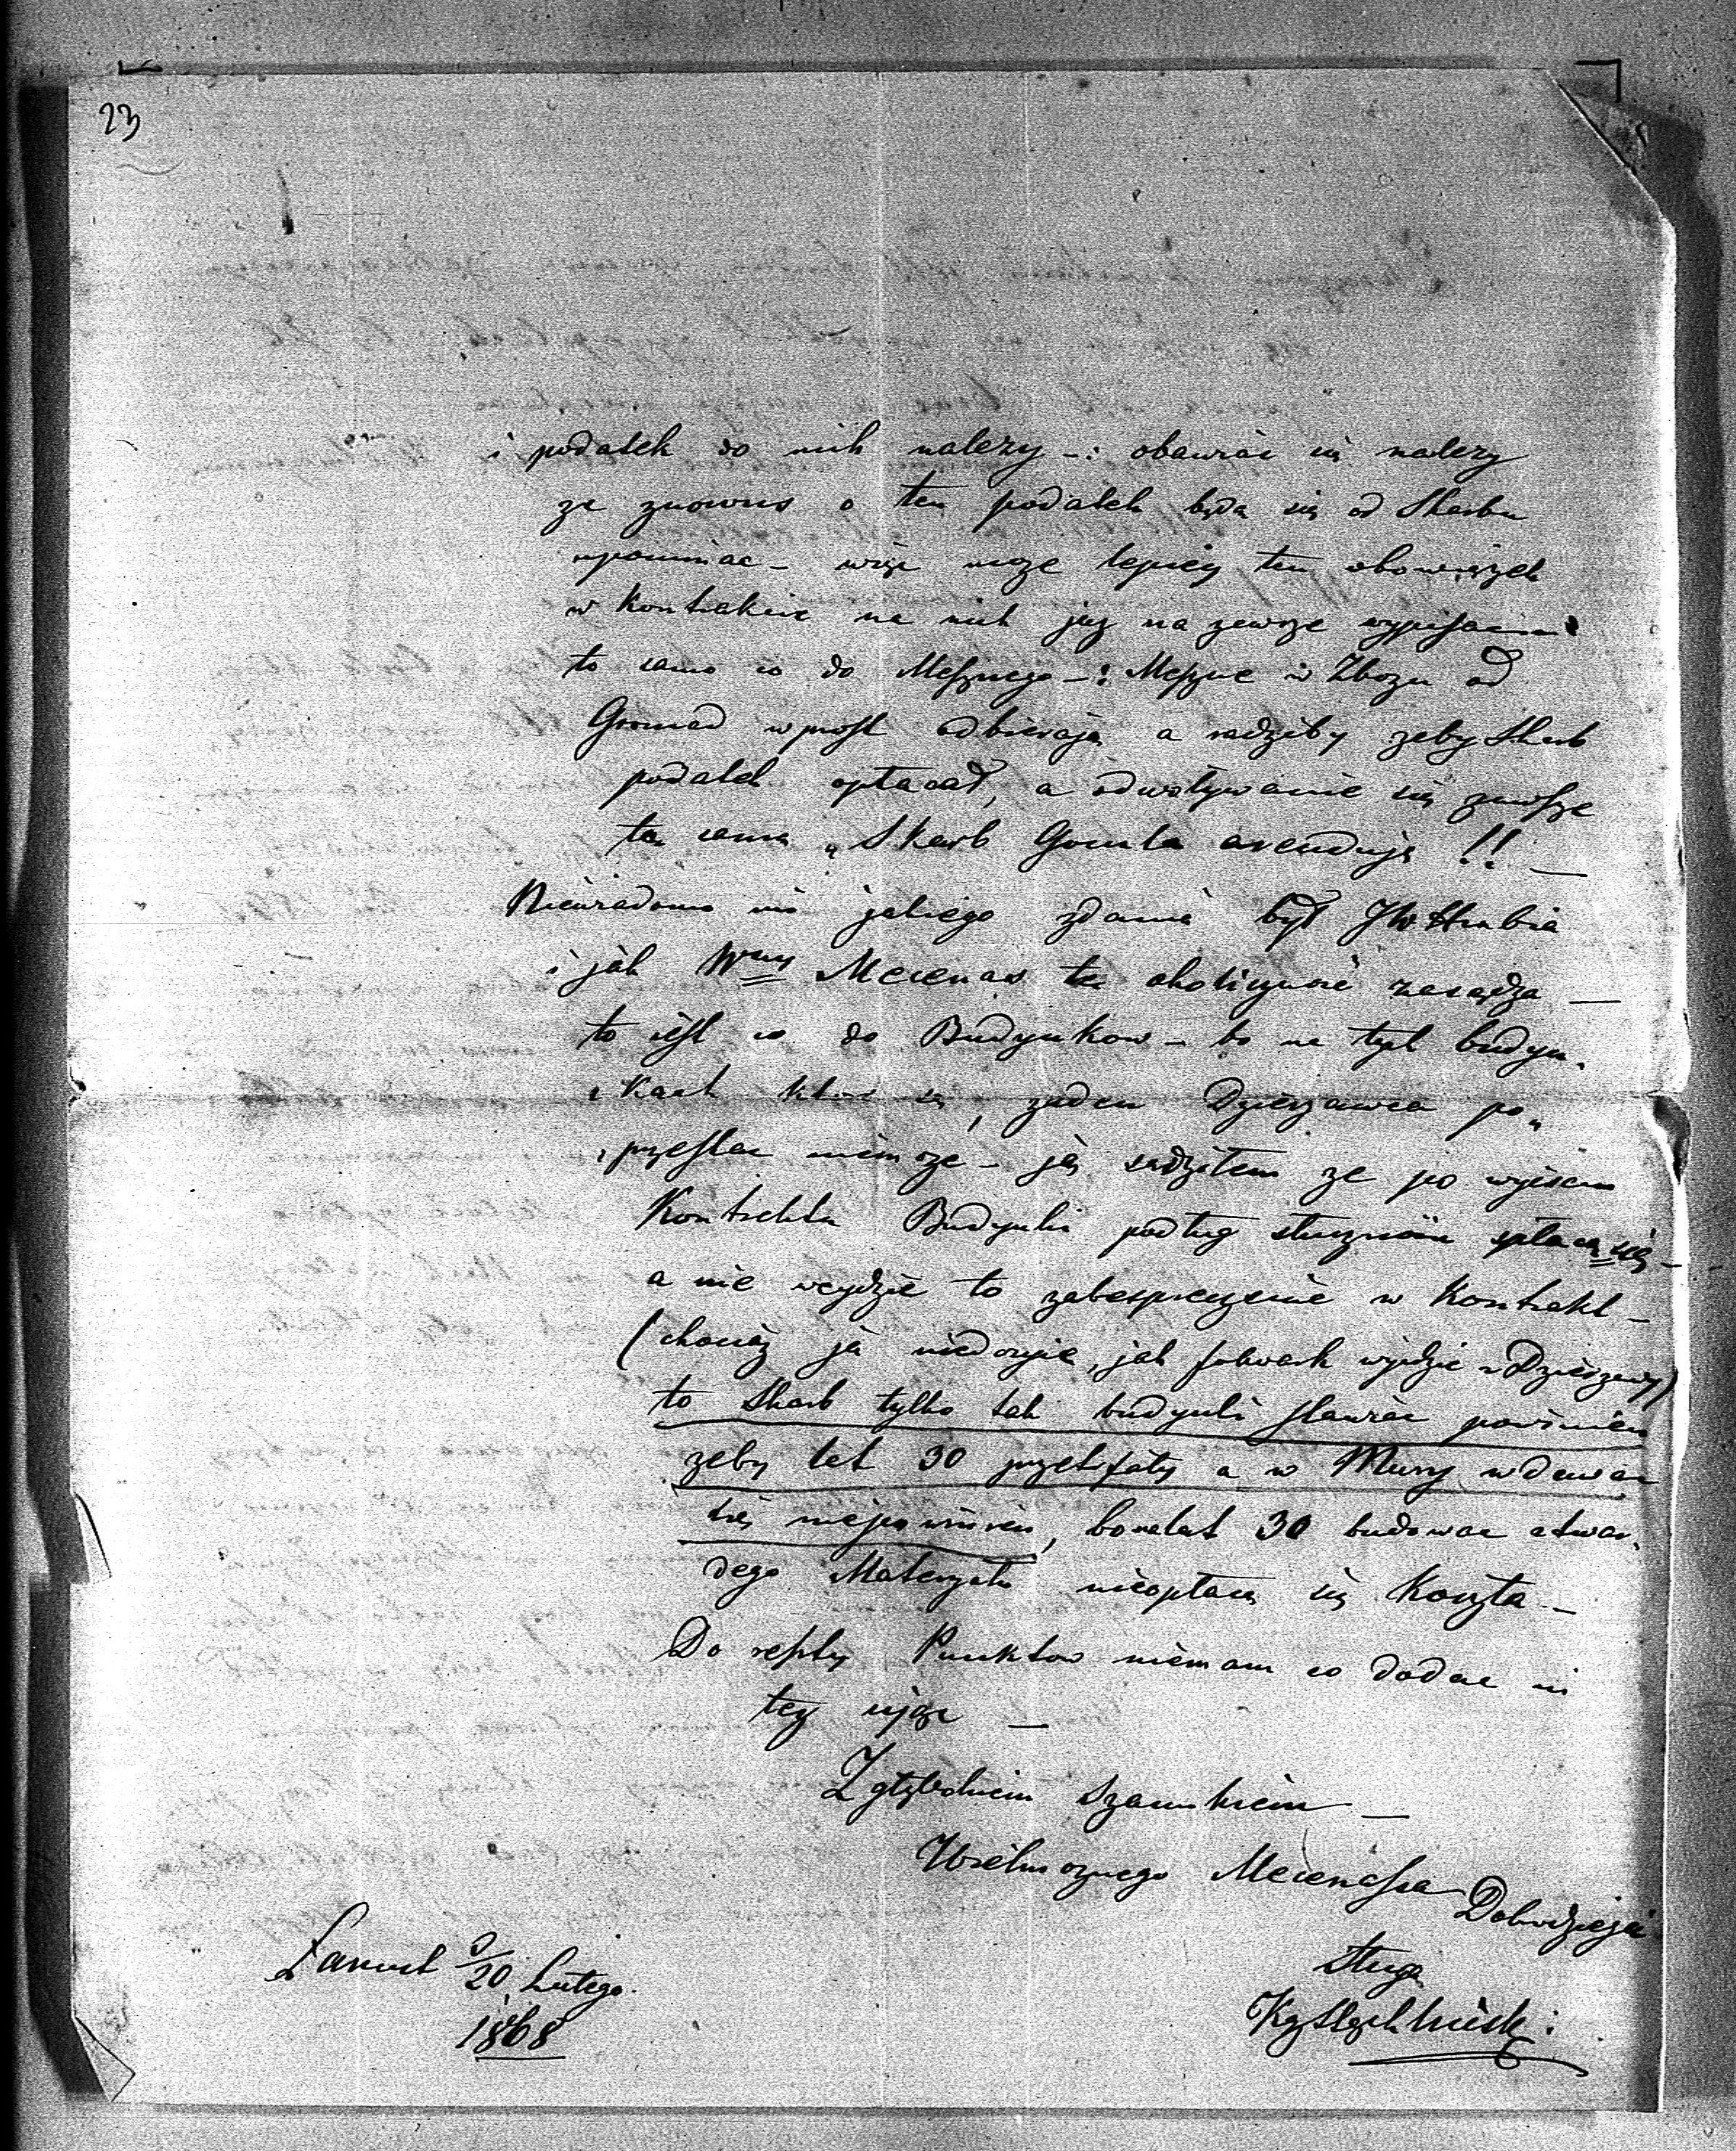 23
i podatek do nich nalezy -: obawiać się nalezy
ze znowus o ten podatek będą się od Skarbu
upominac - więc moze lepiéj ten obowiązek
w Kontrakcie na nich juz na zawsze wypisac
to samo co do Mesznego -: Meszne w Zbozu od
Gromad wprost odbierają a radziby zeby Skarb
podatek opłacał, a odwoływanie się zawsze
to samo „Skarb Grunta arenduje !! —
Niewiadomo mi jakiego zdania był JW Hrabia
i jak Wny Mecenas tę okoliczność rozsądza —
to iest co do Budynkow - bo na tych budyn„
„kach które są, zaden Dzierzawca po„
„przestac niemoze - ja sądziłem ze po wyisciu
Kontraktu Budynki podług słuszności spłacą się -
a nie wejdzie to zabespieczenie w Kontrakt -
(chociaz ja niedozyje, jak folwark wyidzie z Dzierzawy)
to Skarb tylko tak budynki stawiac powinien
zeby lat 30 przetrfały a w Mury wdawac
się niepowinien, bo na lat 30 budowac z twar„
dego Materyału nieopłacą się Koszta -
Do reszty Punktow niemam co dodac ni
tez ująć —
Z głębokiem Szacunkiem —
Wielmoznego Mecenasa Dobrodzieja
Sługa
Łancut d/20 Lutego
1868